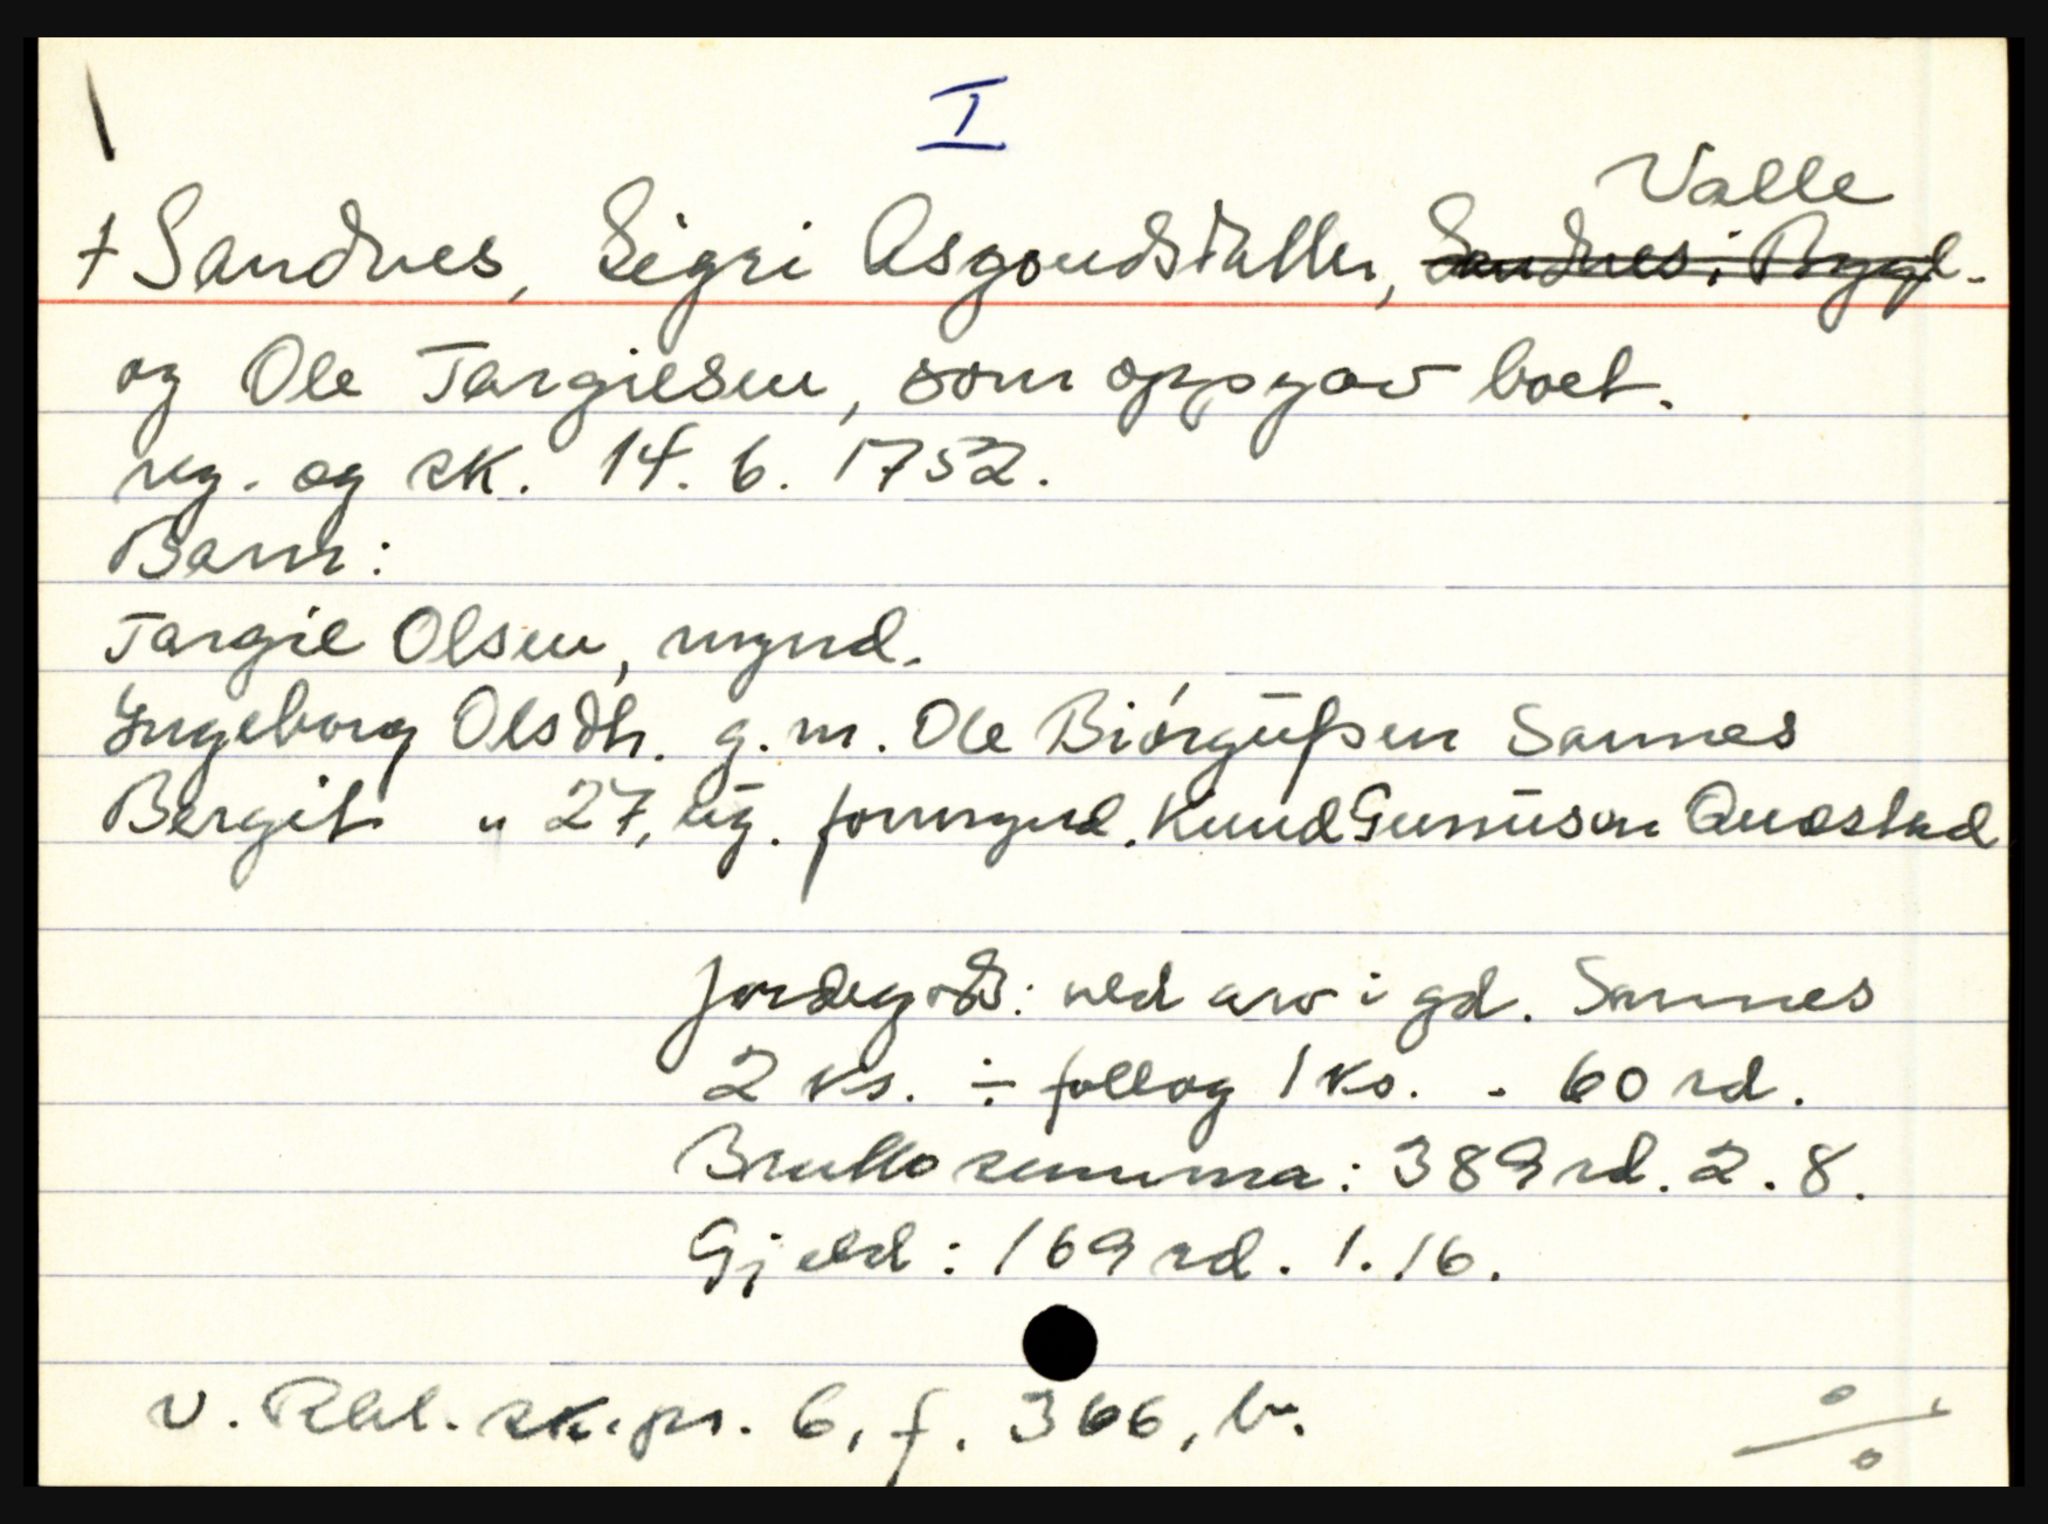 I
Valle
+ Sandnes, Sigri Asgoudsdatter, Sandnes i Bygl.
og Ole Targiesen, som oppgav boet.
reg. og sk. 14. 6. 1752.
Barn:
Targie Olsen, mynd.
Yngeborg Olsdtr. g.m. Ole Biórgufsen Sannes
Bergit " 27, ug. formynd. Knud Gunnusen Quæstad
Jordegods: ned arv i gd. Sannes
2 ks. ÷ follog 1 ks. - 60 rd.
Brutto summa: 389 rd. 2. 8.
Gjeld: 169 rd. 1. 16.
v. Rbl. sk.pr. 6, f. 366, b.